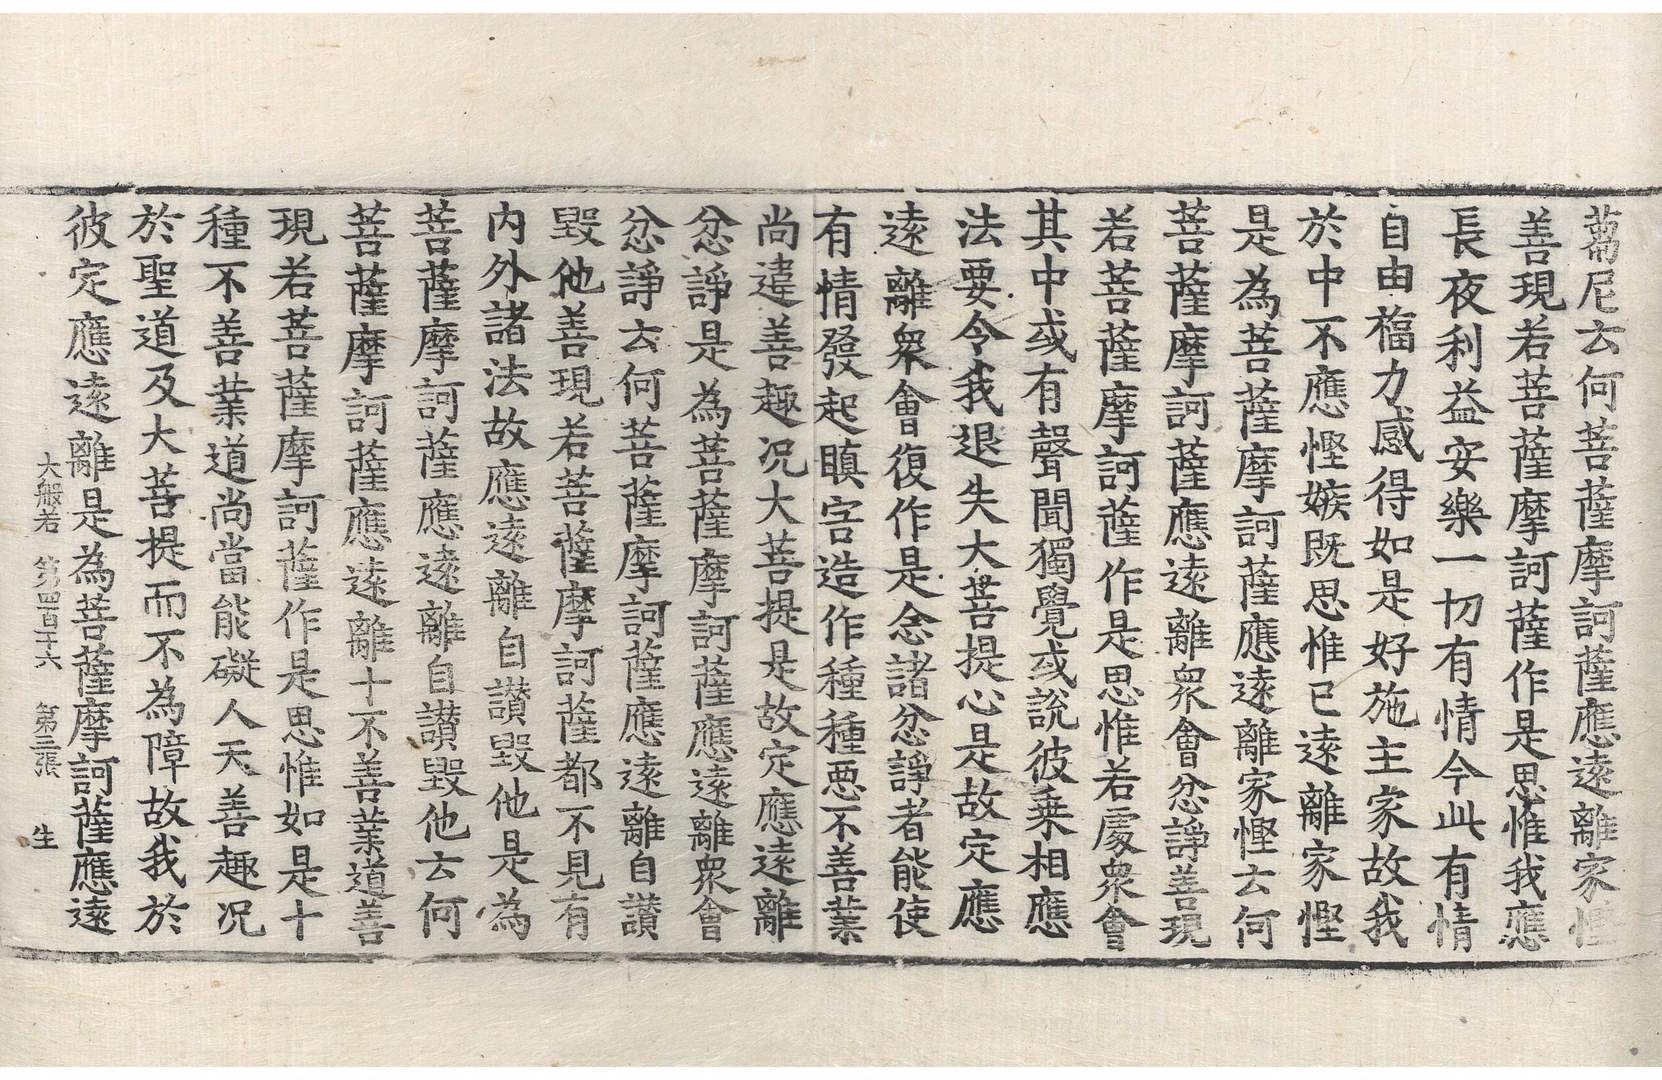 蒭尼云何菩薩摩訶薩應遠離家慳
善現若菩薩摩訶薩作是思惟我應
長夜利益安樂一切有情今此有情
自由福力感得如是好施主家故我
於中不應慳嫉既思惟已遠離家慳
是為菩薩摩訶薩應遠離家慳云何
菩薩摩訶薩應遠離衆會忿諍善現
若菩薩摩訶薩作是思惟若處衆會
其中或有聲聞獨覺或説彼乗相應
法要令我退失大菩提心是故定應
遠離衆會復作是念諸忿諍者能使
有情發起瞋害造作種種惡不善業
尚違善趣况大菩提是故定應遠離
忿諍是為菩薩摩訶薩應遠離衆會
忿諍云何菩薩摩訶薩應遠離自讃
毀他善現若菩薩摩訶薩都不見有
内外諸法故應遠離自讃毀他是為
菩薩摩訶薩應遠離自讃毀他云何
菩薩摩訶薩應遠離十不善業道善
現若菩薩摩訶薩作是思惟如是十
種不善業道尚當能礙人天善趣况
於聖道及大菩提而不為障故我於
彼定應遠離是為菩薩摩訶薩應遠
大般若 第四百十六 第三張 生